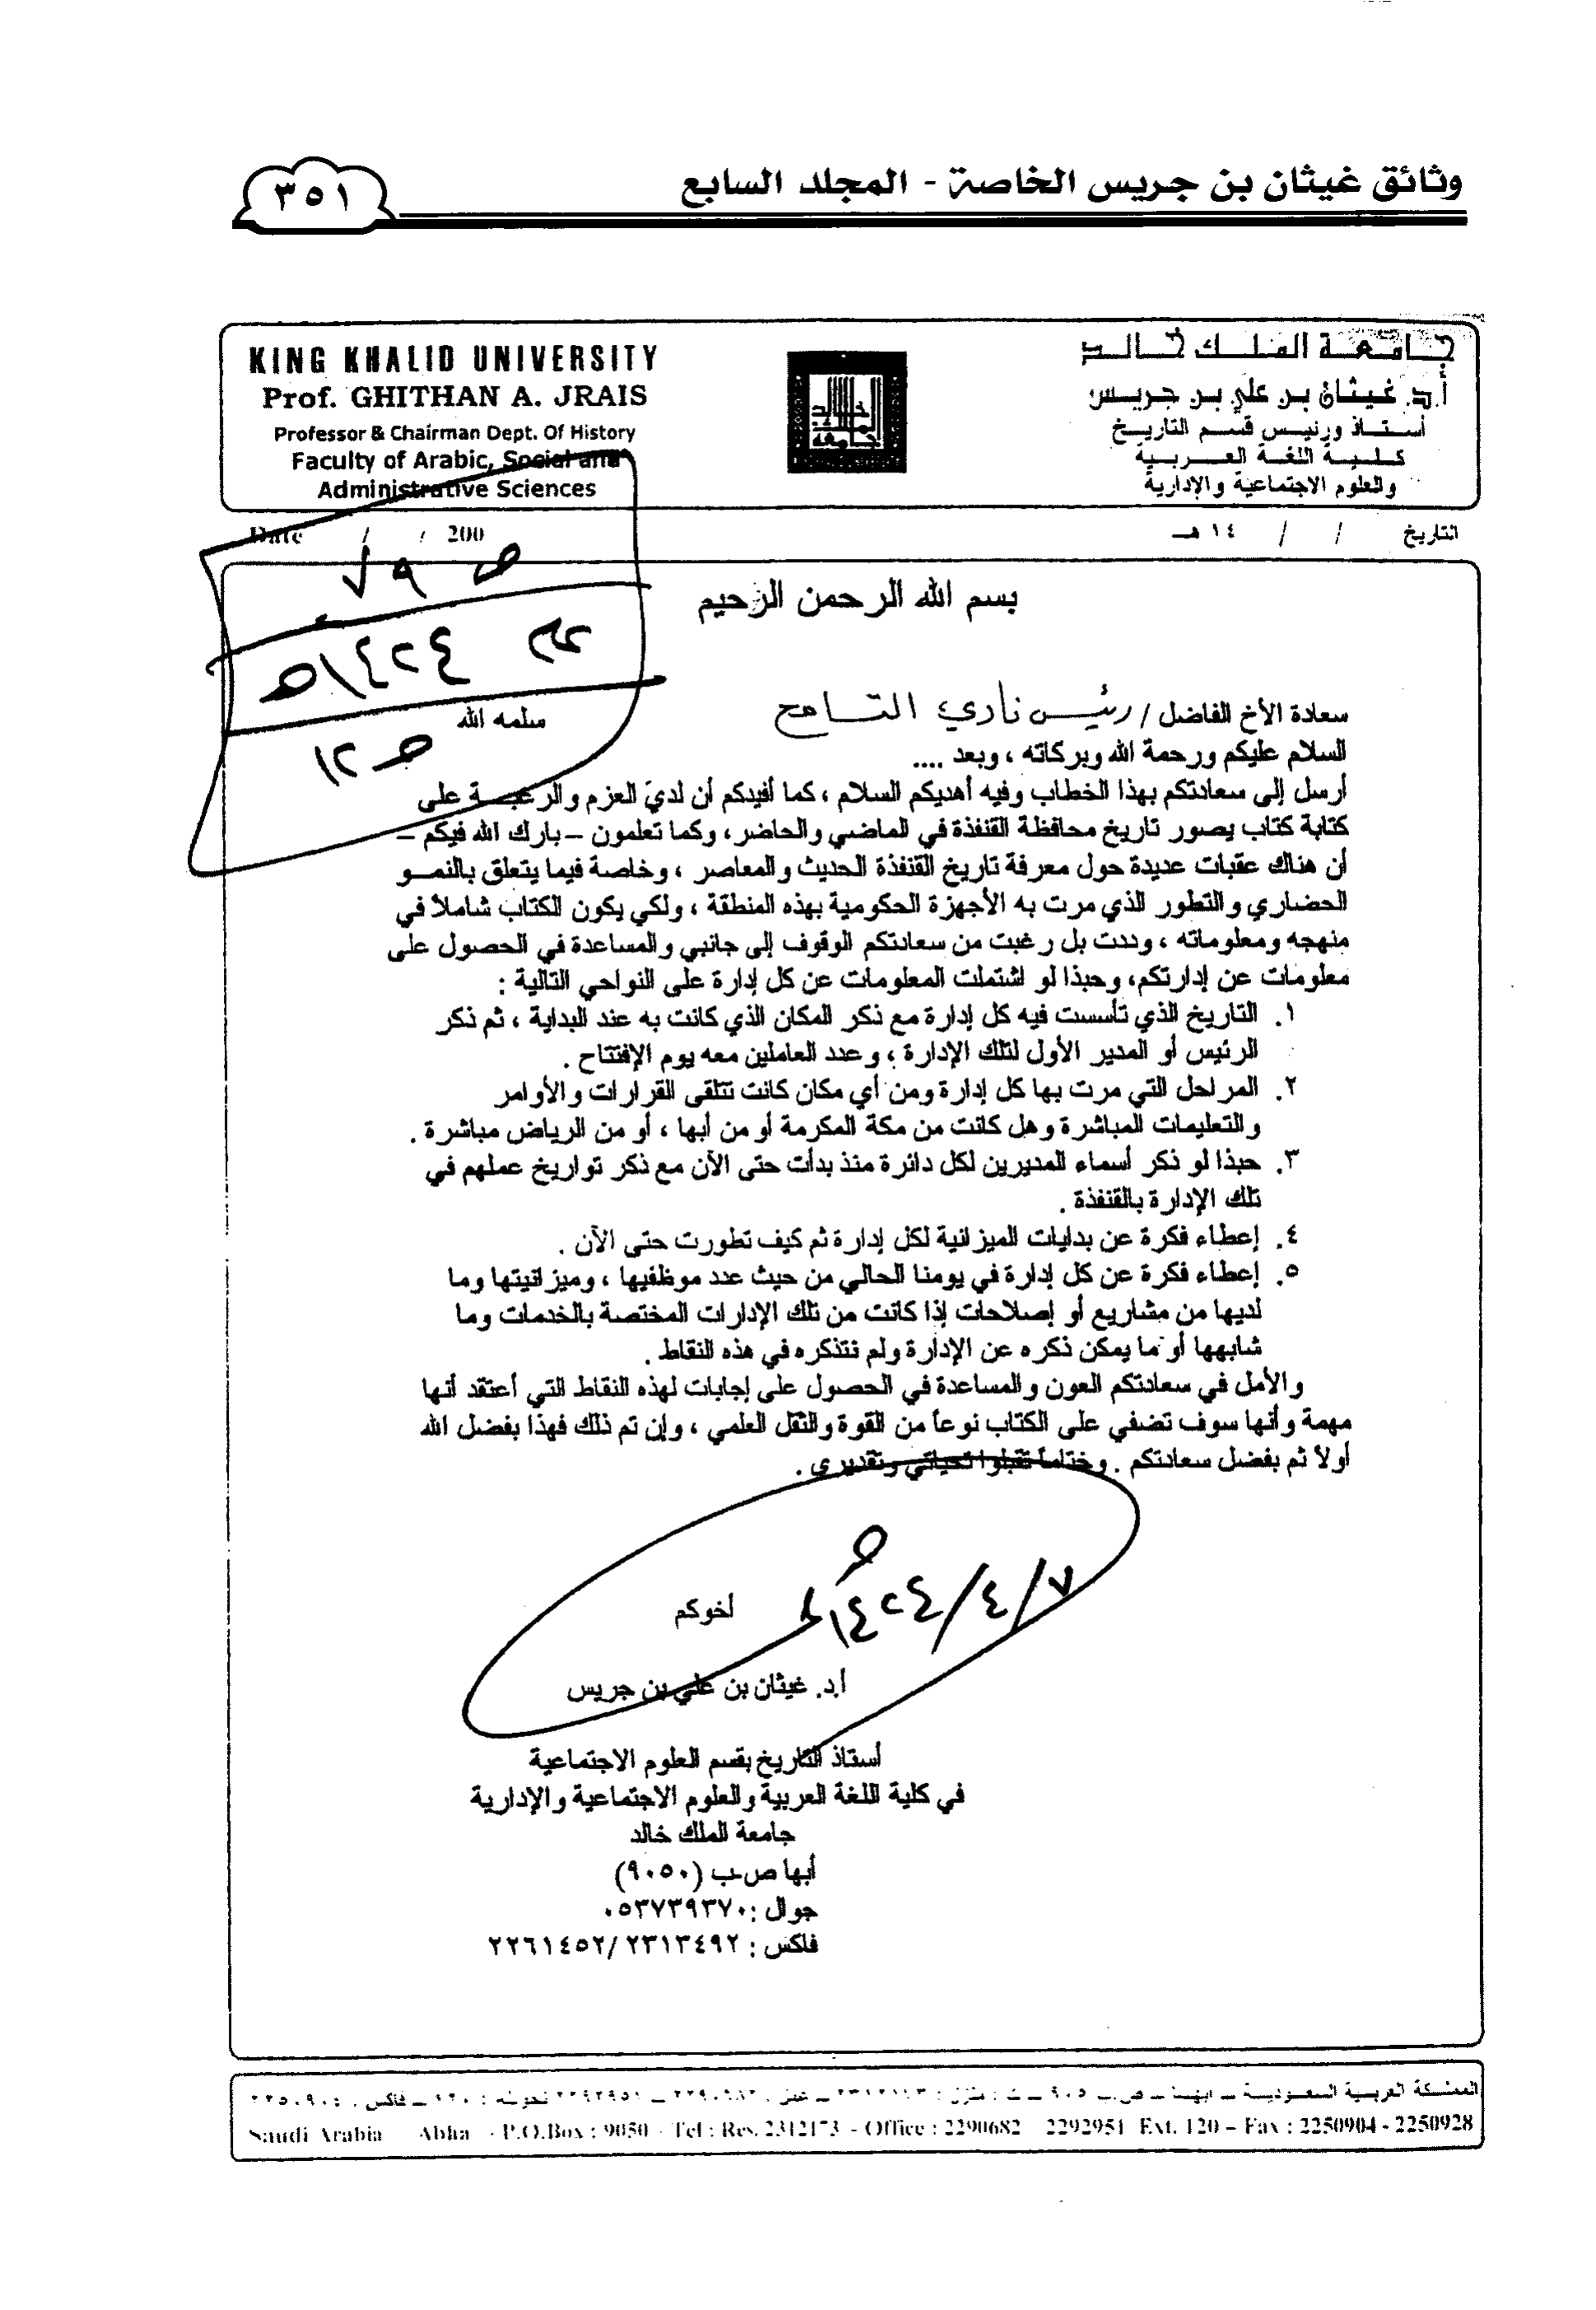 وثائق غيثان بن جريس الخاصة - المجلد السابع
٣٥١
جامعة الملك خالد
أ.د. غيثان بن علي بن جريس
أستاذ ورئيس قسم التاريخ
كلية اللغة العربية
والعلوم الاجتماعية والإدارية
KING KHALID UNIVERSITY
Prof. GHITHAN A. JRAIS
Professor & Chairman Dept. Of History
Faculty of Arabic, Social and
Administrative Sciences
التاريخ / / ١٤ هـ
Date / / 200
بسم الله الرحمن الرحيم
سعادة الأخ الفاضل / رئيس نادي التسامح سلمه الله
السلام عليكم ورحمة الله وبركاته ، وبعد ....
أرسل إلى سعادتكم بهذا الخطاب وفيه أهديكم السلام ، كما أفيدكم أن لديّ العزم والرغبة على
كتابة كتاب يصور تاريخ محافظة القنفذة في الماضي والحاضر، وكما تعلمون – بارك الله فيكم –
أن هناك عقبات عديدة حول معرفة تاريخ القنفذة الحديث والمعاصر ، وخاصة فيما يتعلق بالنمو
الحضاري والتطور الذي مرت به الأجهزة الحكومية بهذه المنطقة ، ولكي يكون الكتاب شاملاً في
منهجه ومعلوماته ، وددت بل رغبت من سعادتكم الوقوف إلى جانبي والمساعدة في الحصول على
معلومات عن إدارتكم، وحبذا لو اشتملت المعلومات عن كل إدارة على النواحي التالية :
١. التاريخ الذي تأسست فيه كل إدارة مع ذكر المكان الذي كانت به عند البداية ، ثم ذكر
الرئيس أو المدير الأول لتلك الإدارة ، وعدد العاملين معه يوم الإفتتاح .
٢. المراحل التي مرت بها كل إدارة ومن أي مكان كانت تتلقى القرارات والأوامر
والتعليمات المباشرة وهل كانت من مكة المكرمة أو من أبها ، أو من الرياض مباشرة .
٣. حبذا لو ذكر أسماء المديرين لكل دائرة منذ بدأت حتى الآن مع ذكر تواريخ عملهم في
تلك الإدارة بالقنفذة .
٤. إعطاء فكرة عن بدايات الميزانية لكل إدارة ثم كيف تطورت حتى الآن .
٥. إعطاء فكرة عن كل إدارة في يومنا الحالي من حيث عدد موظفيها ، وميزانيتها وما
لديها من مشاريع أو إصلاحات إذا كانت من تلك الإدارات المختصة بالخدمات وما
شابهها أو ما يمكن ذكره عن الإدارة ولم نتذكره في هذه النقاط .
والأمل في سعادتكم العون والمساعدة في الحصول على إجابات لهذه النقاط التي أعتقد أنها
مهمة وأنها سوف تضفي على الكتاب نوعاً من القوة والثقل العلمي ، وإن تم ذلك فهذا بفضل الله
أولاً ثم بفضل سعادتكم . وختاماً تقبلوا تحياتي وتقديري .
٧/٤/١٤٢٤هـ
أخوكم
أ.د. غيثان بن علي بن جريس
أستاذ التاريخ بقسم العلوم الاجتماعية
في كلية اللغة العربية والعلوم الاجتماعية والإدارية
جامعة الملك خالد
أبها ص.ب (٩٠٥٠)
جوال :٠٥٣٧٣٩٣٧٠
فاكس : ٢٢٦١٤٥٢/٢٣١٣٤٩٢
المملكة العربية السعودية – ابها –
Saudi Arabia Abha - P.O.Box : 9050 - Tel : Res. 2312173 - Office : 2290682 2292951 Ext. 120 – Fax : 2250904 - 2250928